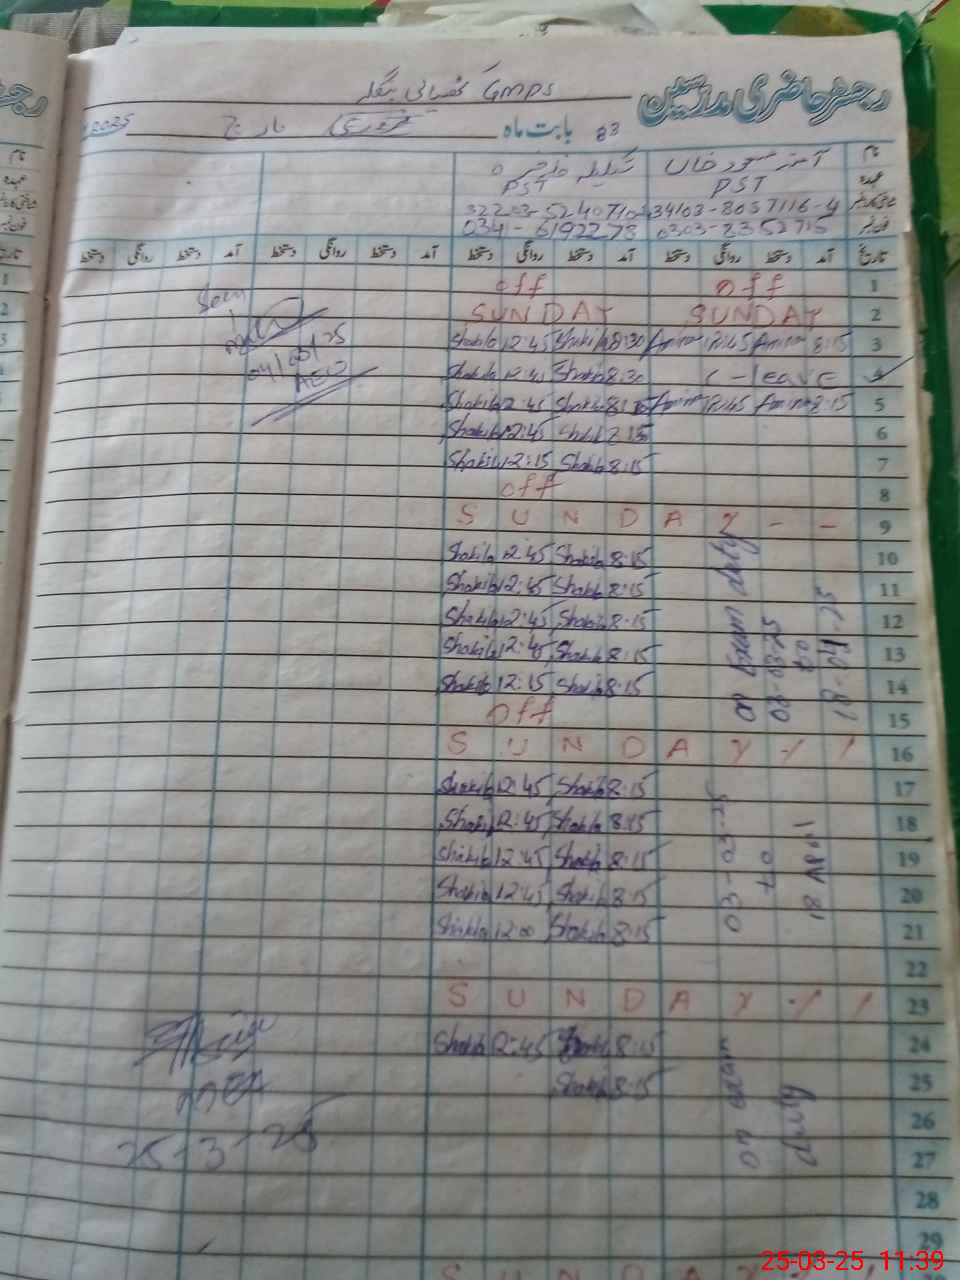 رجسٹر حاضری مدرسین
GMPS
2025 مارچ بابت ماہ 83
نام
عہدہ PST PST
34103-8057116-4
فون نمبر 0303-8352715 034-6192278
تاریخ آمد دستخط روانگی دستخط آمد دستخط روانگی دستخط آمد دستخط روانگی دستخط آمد دستخط روانگی دستخط
1 off off
2 SUNDAY SUNDAY
3 8:15 Amina 12:45 Amina 8:30 Shakila 12:45 Shakila
4 C-leave 8:30 Shakila 12:45 Shakila
5 8:15 Amina 12:45 Amina Shakila 12:45 Shakila
6 8:15 12:45 Shakila
7 8:15 Shakila 12:15 Shakila
8 off
9 SUNDAY - -
10 8:15 Shakila 12:45 Shakila
11 8:15 Shakila 12:45 Shakila
12 8:15 Shakila 12:45 Shakila
13 8:15 Shakila 12:45 Shakila
14 8:15 Shakila 12:15 Shakila
15 off
16 SUNDAY
17 8:15 Shakila 12:45 Shakila
18 8:15 Shakila 12:45 Shakila
19 8:15 Shakila 12:45 Shakila
20 8:15 Shakila 12:45 Shakila
21 8:15 Shakila 12:00 Shakila
22
23 SUNDAY
24 8:15 12:45 Shakila
25 8:15 Shakila
26
27
28
29
SUNDAY
on Exam duty
03-03-25
to
18-04-25
03-03-25
to
18 April
on exam
duty
Seen
04/03/25
AEO
25-3-25
25-03-25 11:39